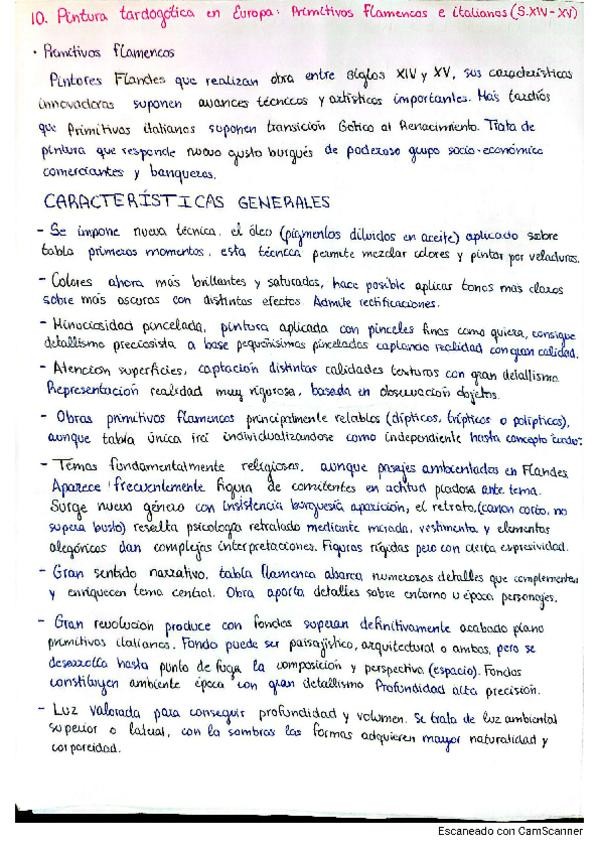 10. Pintura tardogótica en Europa: Primitivos Flamencos e italianos (S.XIV - XV)
· Primitivos flamencos
Pintores Flandes que realizan obra entre siglos XIV y XV, sus características
innovadoras suponen avances técnicos y artísticos importantes. Más tardíos
que Primitivos italianos suponen transición Gótico al Renacimiento. Trata de
pintura que responde nuevo gusto burgués de poderoso grupo socio-económico
comerciantes y banqueros.
CARACTERÍSTICAS GENERALES
- Se impone nueva técnica, el óleo (pigmentos diluidos en aceite) aplicado sobre
tabla primeros momentos, esta técnica permite mezclar colores y pintar por veladuras.
- Colores ahora más brillantes y saturados, hace posible aplicar tonos más claros
sobre más oscuros con distintos efectos Admite rectificaciones.
- Minuciosidad pincelada, pintura aplicada con pinceles finos como quiera, consigue
detallismo preciosista a base pequeñísimas pinceladas captando realidad con gran calidad.
- Atención superficies, captación distintas calidades texturas con gran detallismo.
Representación realidad muy rigurosa, basada en observación objetos.
- Obras primitivos flamencos principalmente retablos (dípticos, trípticos o polípticos),
aunque tabla única irá individualizandose como independiente hasta concepto
- Temas fundamentalmente religiosos, aunque pasajes ambientados en Flandes.
Aparece frecuentemente figura de comitentes en actitud piadosa ante tema.
Surge nuevo género con insistencia burguesía aparición, el retrato, (canon corto, no
supera busto) resalta psicología retratado mediante mirada, vestimenta y elementos
alegóricos dan complejas interpretaciones. Figuras rígidas pero con cierta expresividad.
- Gran sentido narrativo, tabla flamenca abarca numerosos detalles que complementan
y enriquecen tema central. Obra aporta detalles sobre entorno u época personajes.
- Gran revolución produce con fondos superan definitivamente acabado plano
primitivos italianos. Fondo puede ser paisajístico, arquitectural o ambos, pero se
desarrolla hasta punto de fuga la composición y perspectiva (espacio). Fondos
constituyen ambiente época con gran detallismo Profundidad alta precisión.
- Luz valorada para conseguir profundidad y volumen. Se trata de luz ambiental
superior o lateral, con la sombras las formas adquieren mayor naturalidad y
corporeidad.
Escaneado con CamScanner